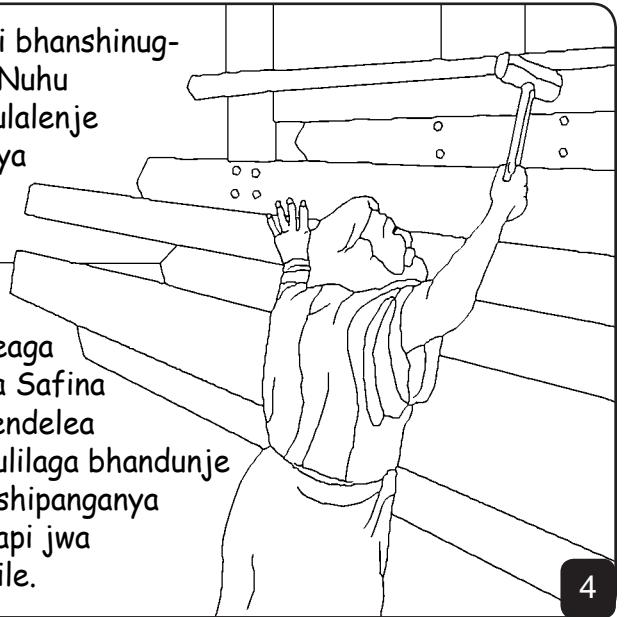 i bhanshinug-
Nuhu
ulalenje
ya
eaga
a Safina
endelea
ulilaga bhandunje
shipanganya
api jwa
ile.
4